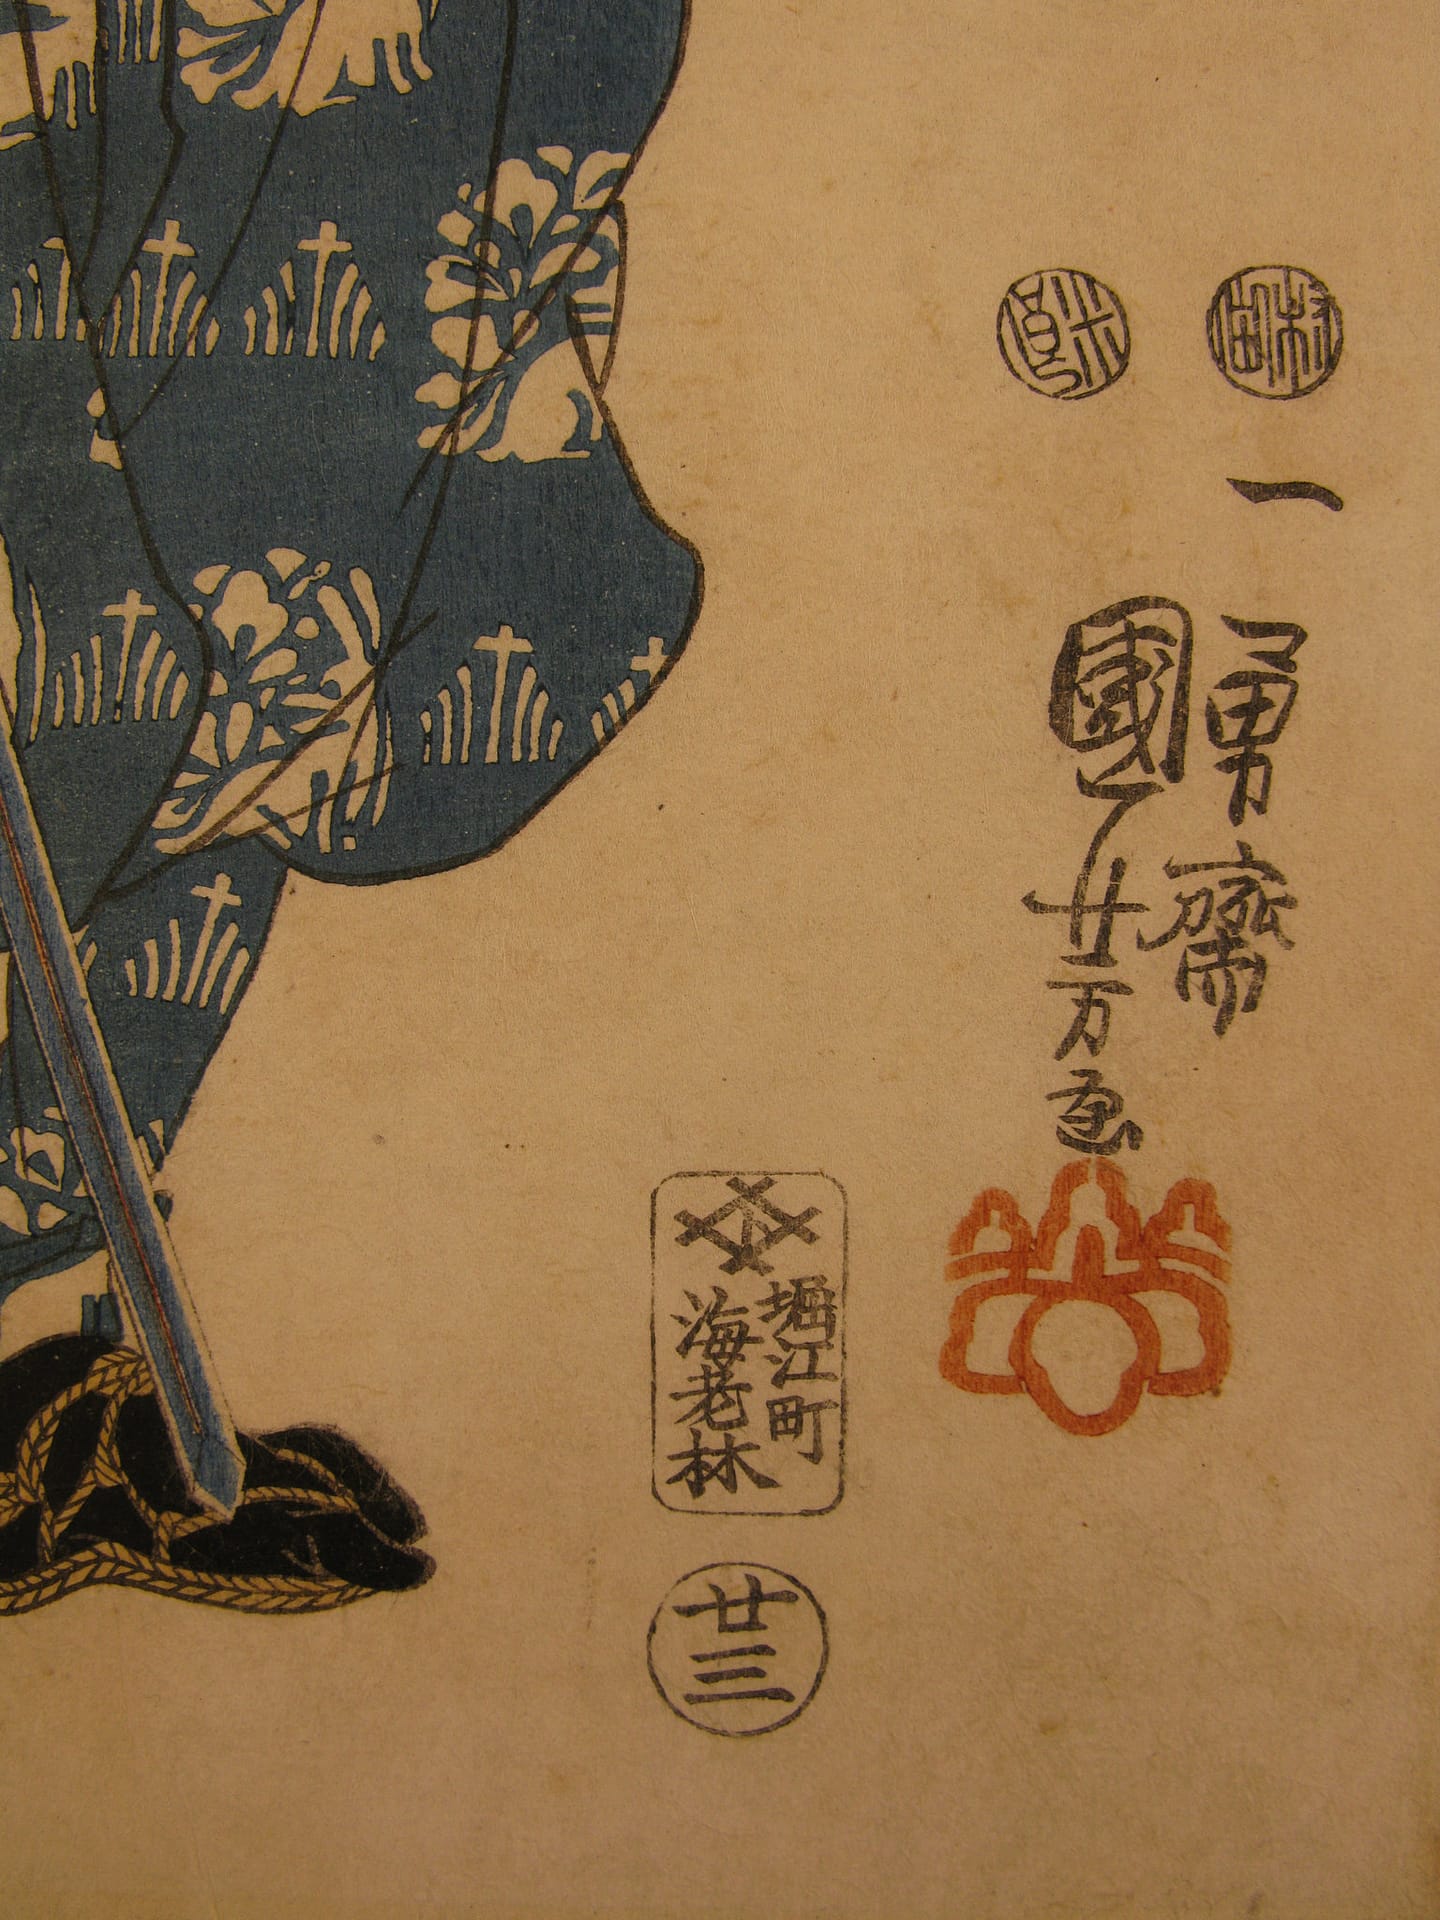 村田
米良
一勇齋
國芳画
堀江町
海老林
廿三